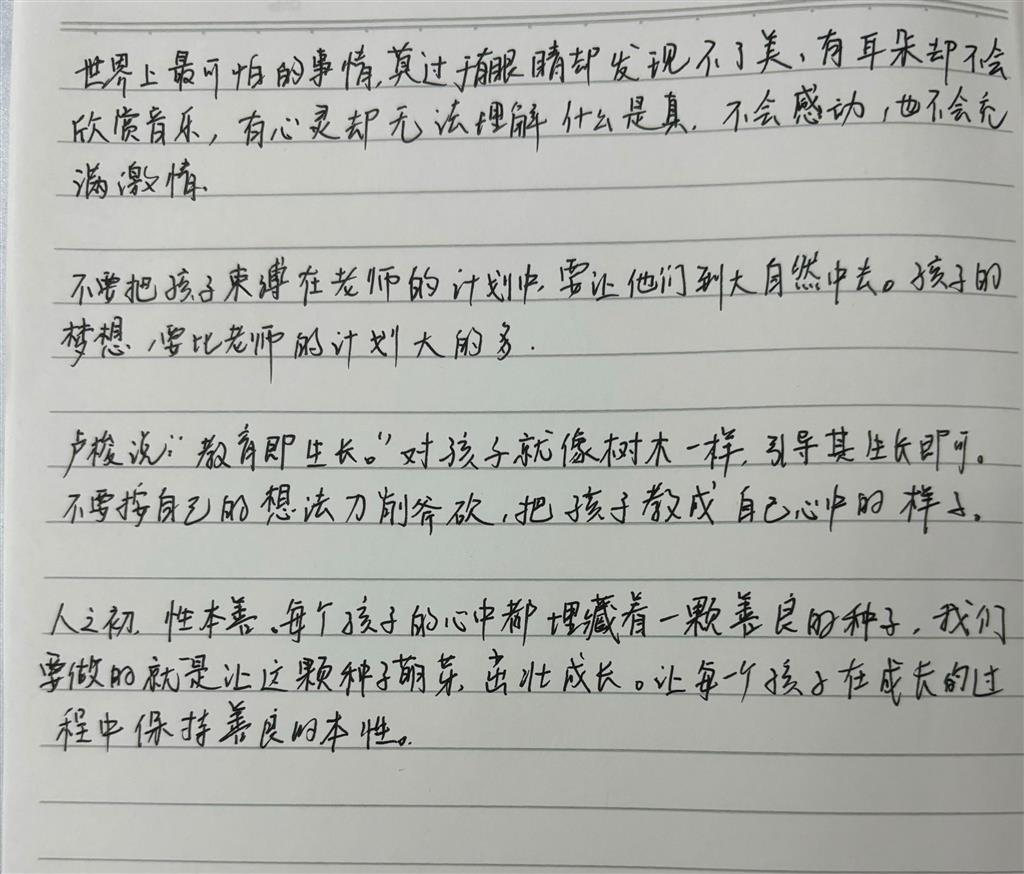 世界上最可怕的事情,莫过于有眼睛却发现不了美,有耳朵却不会
欣赏音乐,有心灵却无法理解什么是真.不会感动,也不会充
满激情.
不要把孩子束缚在老师的计划中,要让他们到大自然中去。孩子的
梦想,要比老师的计划大的多.
卢梭说:“教育即生长。”对孩子就像树木一样,引导其生长即可。
不要按自己的想法刀削斧砍,把孩子教成自己心中的样子。
人之初,性本善。每个孩子的心中都埋藏着一颗善良的种子,我们
要做的就是让这颗种子萌芽,茁壮成长。让每一个孩子在成长的过
程中保持善良的本性。